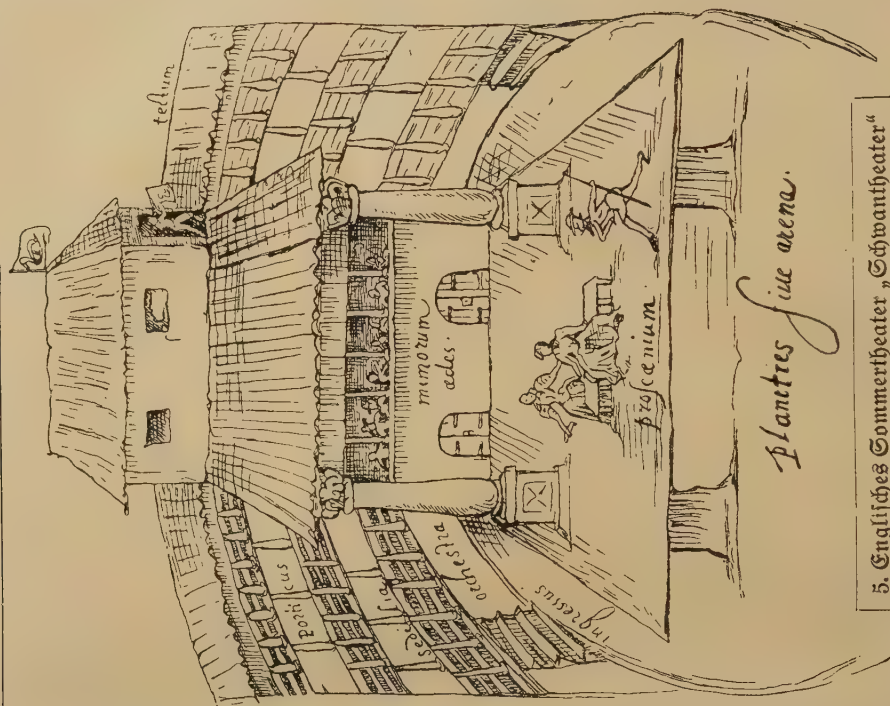 tectum
porticus
sedilia
orchestra
mimorum
ades.
ingressus
proscœnium.
planities siue arena.
5. Englisches Sommertheater „Schwantheater“